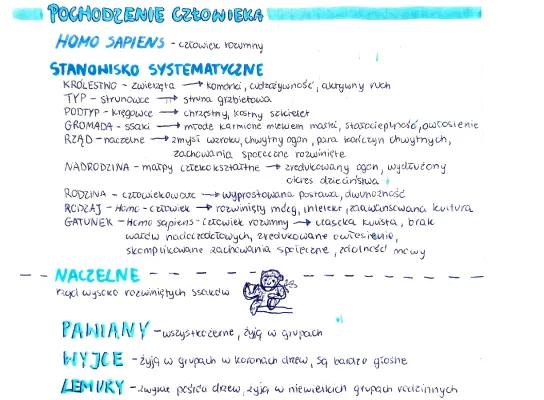 POCHODZENIE CZŁOWIEKA
HOMO SAPIENS - człowiek rozumny
STANOWISKO SYSTEMATYCZNE
KRÓLESTWO - zwierzęta → komórki, cudzożywność, aktywny ruch
TYP - strunowce → struna grzbietowa
PODTYP - kręgowce → chrzęstny, kostny szkielet
GROMADA - ssaki → młode karmione mlekiem matki, stałocieplność, owłosienie
RZĄD - naczelne → zmysł wzroku, chwytny ogon, para kończyn chwytnych,
zachowania społeczne rozwinięte
NADRODZINA - małpy człekokształtne → zredukowany ogon, wydłużony
okres dzieciństwa
RODZINA - człowiekowate → wyprostowana postawa, dwunożność
RODZAJ - Homo - człowiek → rozwinięty mózg, intelekt, zaawansowana kultura
GATUNEK - Homo sapiens - człowiek rozumny → czaszka, brak
wałów nadoczodołowych, zredukowane owłosienie,
skomplikowane zachowania społeczne, zdolność mowy
NACZELNE
rząd wysoko rozwiniętych ssaków
PAWIANY - wszystkożerne, żyją w grupach
WYJCE - żyją w grupach w koronach drzew, są bardzo głośne
LEMURY - zwykle pośród drzew, żyją w niewielkich grupach rodzinnych